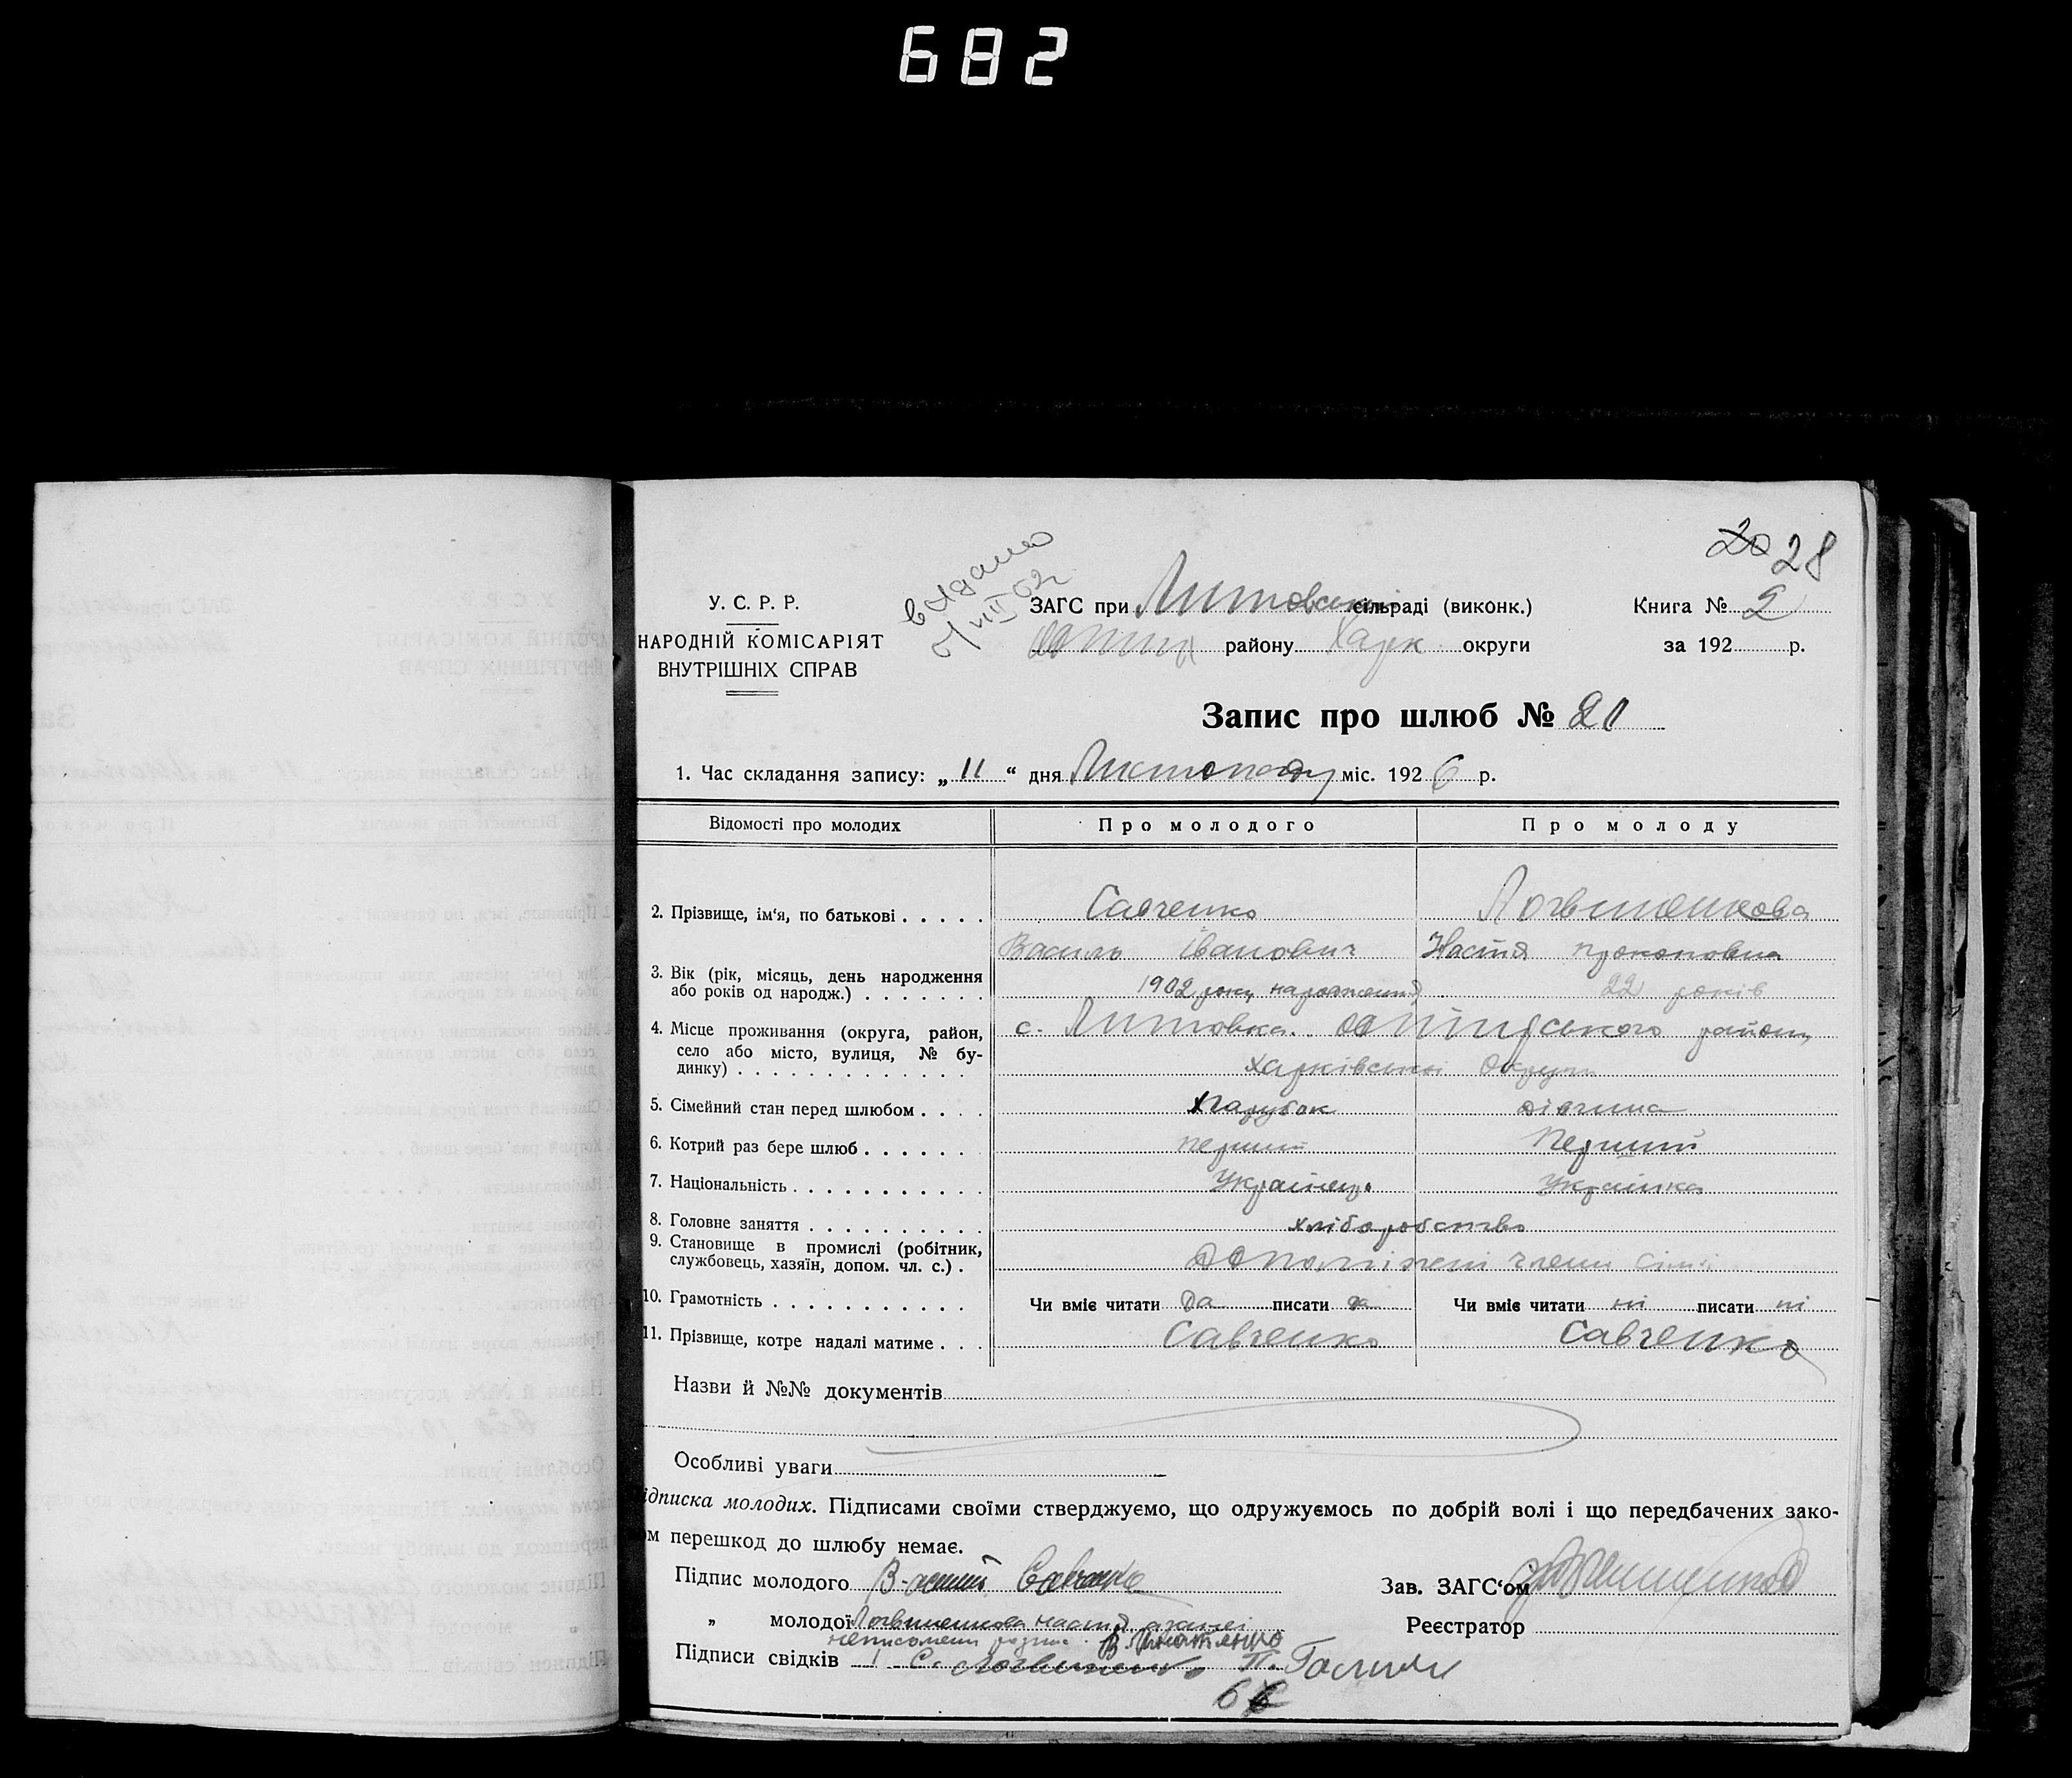 682
20 28
У. С. Р. Р.
НАРОДНІЙ КОМІСАРІЯТ
ВНУТРІШНІХ СПРАВ
ЗАГС при Литовськ сільраді (виконк.)
району Харк округи
Книга № 2
за 192 р.
Запис про шлюб № 21
1. Час складання запису: „ 11 “ дня Листопаду міс. 1926 р.
Відомості про молодих Про молодого Про молоду
2. Прізвище, ім‘я, по батькові . . . . . Савченко Логвиненкова
Василь Іванович Настя Прокоповна
3. Вік (рік, місяць, день народження
або років од народж.) . . . . . . . 1902 року народження 22 років
4. Місце проживання (округа, район, с. Литовка. району
село або місто, вулиця, № бу-
динку) . . . . . . . . . . . . . Харківської Округи
5. Сімейний стан перед шлюбом . . . . парубок дівчина
6. Котрий раз бере шлюб . . . . . . перший Перший
7. Національність . . . . . . . . . . . Українець Українка
8. Головне заняття . . . . . . . . . . хліборобство
9. Становище в промислі (робітник,
службовець, хазяїн, допом. чл. с.) . допоміжні члени сім'ї
10. Грамотність . . . . . . . . . . . Чи вміє читати да писати да Чи вміє читати ні писати ні
11. Прізвище, котре надалі матиме . . . Савченко Савченко
Назви й №№ документів
Особливі уваги
ідписка молодих. Підписами своїми стверджуємо, що одружуємось по добрій волі і що передбачених зако-
ом перешкод до шлюбу немає.
Підпис молодого Савченко
Зав. ЗАГС‘ом
„ молодої Логвиненкова Настя
Реєстратор
Підписи свідків С. Логвиненко П.